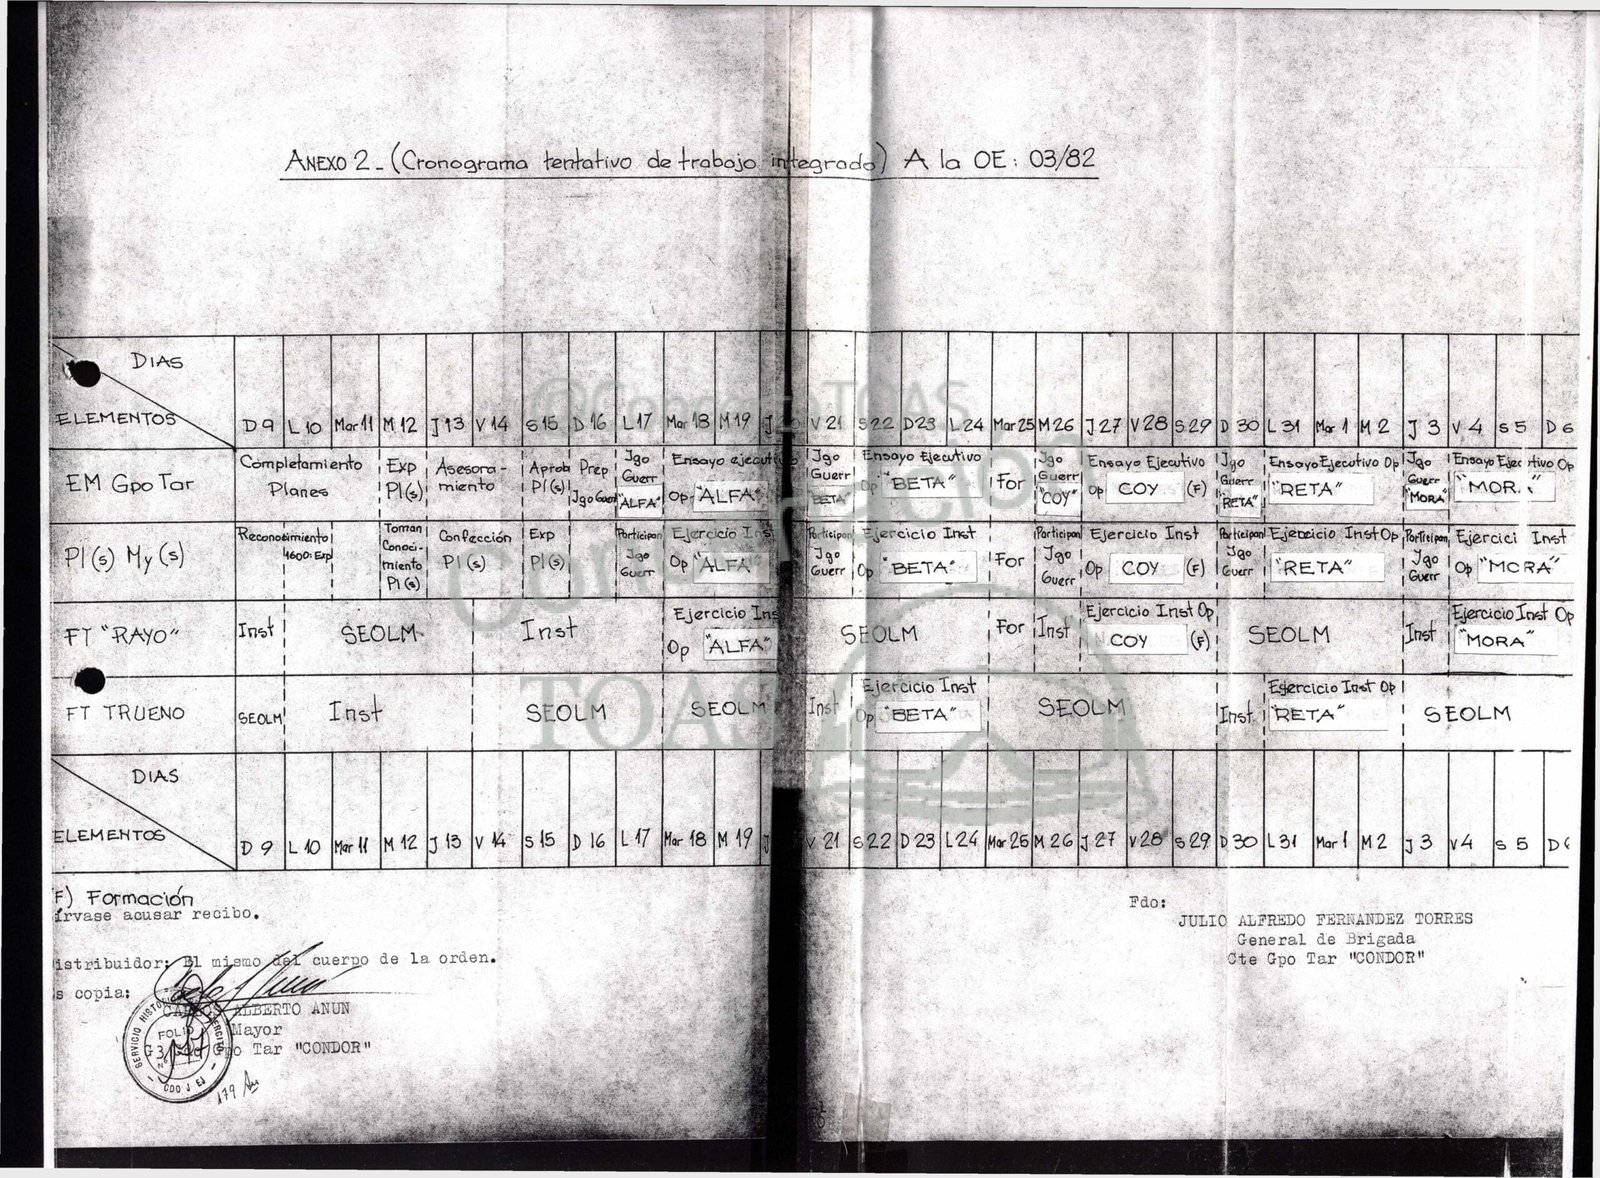 ANEXO 2_ (Cronograma tentativo de trabajo integrado) A la OE: 03/82
DIAS
ELEMENTOS
D 9 L 10 Mar 11 M 12 J 13 V 14 S 15 D 16 L 17 Mar 18 M 19 J V 21 S 22 D 23 L 24 Mar 25 M 26 J 27 V 28 S 29 D 30 L 31 Mar 1 M 2 J 3 V 4 S 5 D 6
EM Gpo Tar
Completamiento Planes
Exp Pl(s)
Asesora-miento
Aprob Pl(s)
Prep Jgo Guerr
Jgo Guerr "ALFA"
Ensayo ejecutivo Op "ALFA"
Jgo Guerr "BETA"
Ensayo Ejecutivo Op "BETA"
For
Jgo Guerr "COY"
Ensayo Ejecutivo Op COY (F)
Jgo Guerr "RETA"
Ensayo Ejecutivo Op "RETA"
Jgo Guerr "MORA"
Ensayo Ejecutivo Op "MORA"
Pl(s) My(s)
Reconocimiento
4600: Exp
Toman Conoci-miento Pl(s)
Confección Pl(s)
Exp Pl(s)
Participan Jgo Guerr
Ejercicio Inst Op "ALFA"
Participan Jgo Guerr
Ejercicio Inst Op "BETA"
For
Participan Jgo Guerr
Ejercicio Inst Op COY (F)
Participan Jgo Guerr
Ejercicio Inst Op "RETA"
Participan Jgo Guerr
Ejercici Inst Op "MORA"
FT "RAYO"
Inst
SEOLM
Inst
Ejercicio Ins Op "ALFA"
SEOLM
For
Inst
Ejercicio Inst Op COY (F)
SEOLM
Inst
Ejercicio Inst Op "MORA"
FT TRUENO
SEOLM
Inst
SEOLM
SEOLM
Inst
Ejercicio Inst Op "BETA"
SEOLM
Inst
Ejercicio Inst Op "RETA"
SEOLM
DIAS
ELEMENTOS
D 9 L 10 Mar 11 M 12 J 13 V 14 S 15 D 16 L 17 Mar 18 M 19 J V 21 S 22 D 23 L 24 Mar 25 M 26 J 27 V 28 S 29 D 30 L 31 Mar 1 M 2 J 3 V 4 S 5 D 6
F) Formación
írvase acusar recibo.
istribuidor: El mismo del cuerpo de la orden.
s copia:
CARLOS ALBERTO ANUN
Mayor
G3 Gpo Tar "CONDOR"
SERVICIO HISTORICO EJERCITO
FOLIO
Nº
CDO J EJ
179
Fdo:
JULIO ALFREDO FERNANDEZ TORRES
General de Brigada
Cte Gpo Tar "CONDOR"
TOAS